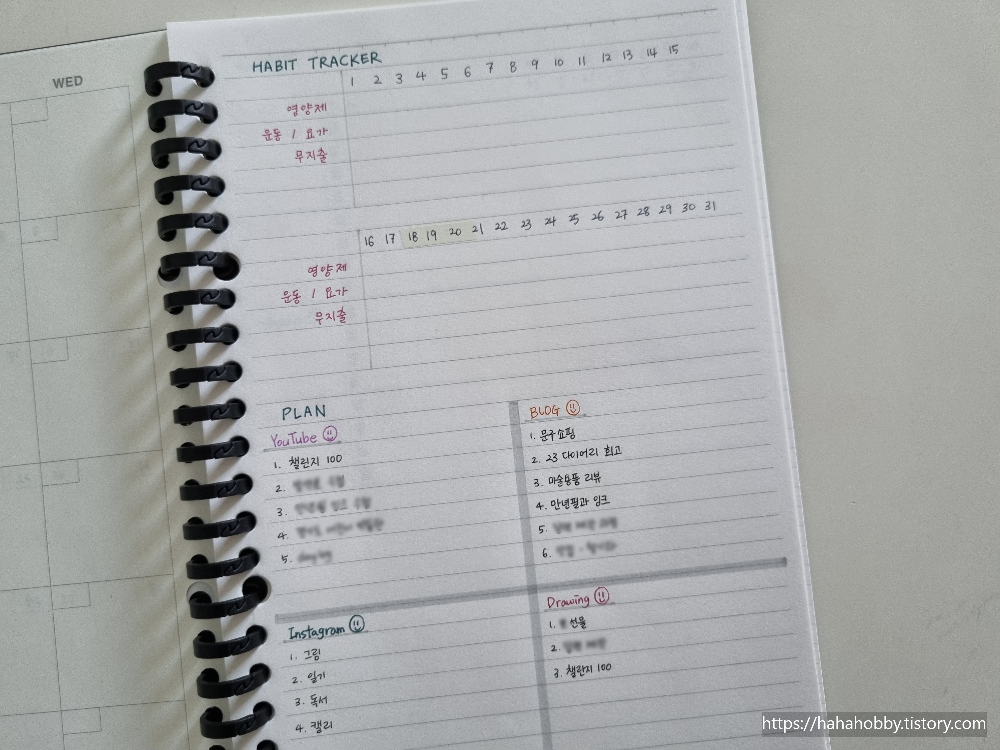 WED
HABIT TRACKER
1 2 3 4 5 6 7 8 9 10 11 12 13 14 15
영양제
운동 / 요가
무지출
16 17 18 19 20 21 22 23 24 25 26 27 28 29 30 31
영양제
운동 / 요가
무지출
PLAN
YouTube
1. 챌린지 100
2.
3.
4.
5.
BLOG
1. 문구쇼핑
2. 23 다이어리 회고
3. 마술용품 리뷰
4. 만년필과 잉크
5.
6.
Instagram
1. 그림
2. 일기
3. 독서
4. 캘리
Drawing
1. 선물
2.
3. 챌린지 100
https://hahahobby.tistory.com